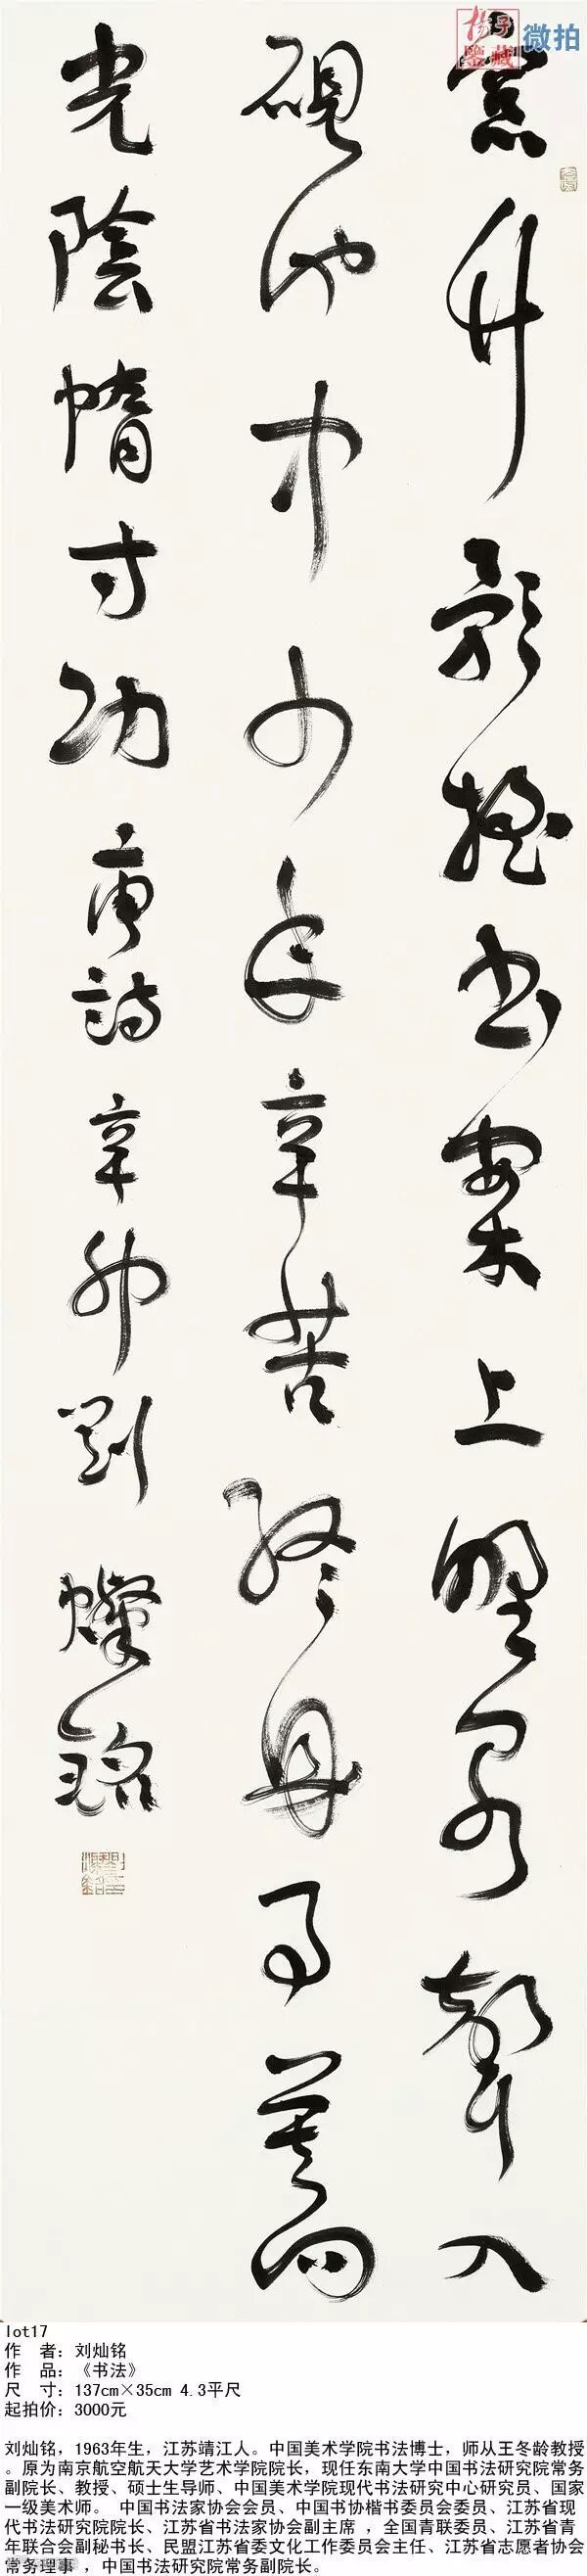 窗竹影搖書案上野泉聲入
硯池中少年辛苦終身事莫向
光陰惰寸功 唐詩 辛卯 劉燦銘
子鑒藏
微拍
lot17
作 者：刘灿铭
作 品：《书法》
尺 寸：137cm×35cm 4.3平尺
起拍价：3000元
刘灿铭，1963年生，江苏靖江人。中国美术学院书法博士，师从王冬龄教授
。原为南京航空航天大学艺术学院院长，现任东南大学中国书法研究院常务
副院长、教授、硕士生导师、中国美术学院现代书法研究中心研究员、国家
一级美术师。 中国书法家协会会员、中国书协楷书委员会委员、江苏省现
代书法研究院院长、江苏省书法家协会副主席 ，全国青联委员、江苏省青
年联合会副秘书长、民盟江苏省委文化工作委员会主任、江苏省志愿者协会
常务理事 ，中国书法研究院常务副院长。